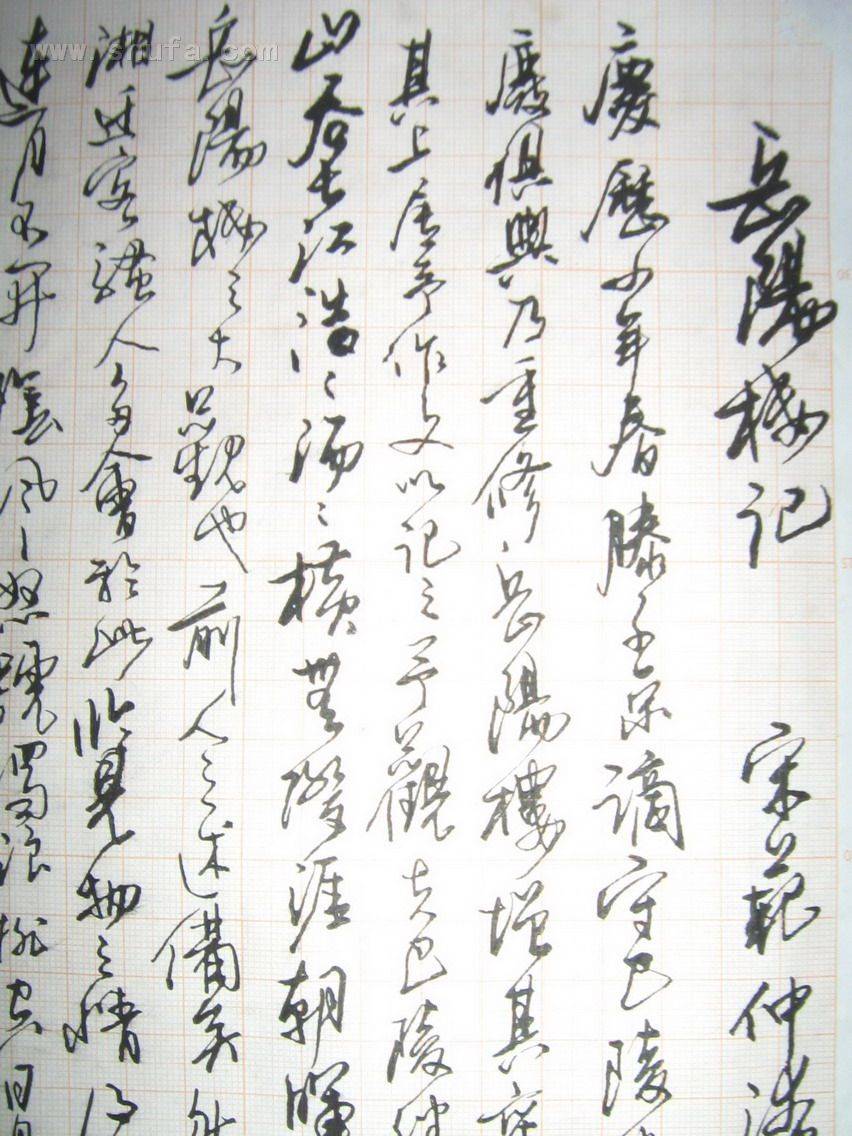 www.shufa.com
岳陽樓记 宋範仲淹
慶歷四年春滕子京謫守巴陵
廢俱興乃重修岳陽樓增其
其上屬予作文以记之予觀夫巴陵
山吞長江浩〻湯〻横無際涯朝暉
岳陽樓之大觀也前人之述備矣然
湘遷客騷人多會於此览物之情得
連月不開陰風怒號濁浪排空日